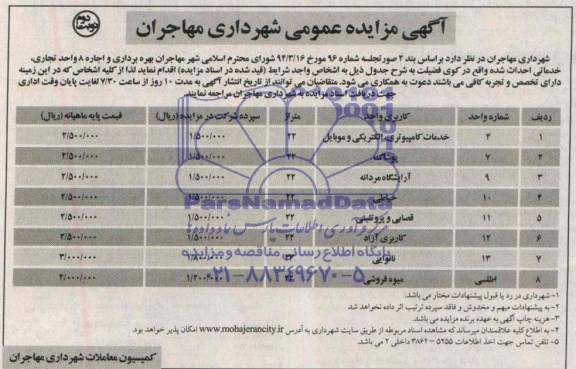 آگهی مزایده عمومی شهرداری مهاجران
نوبت دوم
شهرداری مهاجران در نظر دارد براساس بند ۲ صورتجلسه شماره ۹۶ مورخ ۹۴/۳/۱۶ شورای محترم اسلامی شهر مهاجران بهره برداری و اجاره ۸ واحد تجاری،
خدماتی احداث شده واقع در کوی فضیلت به شرح جدول ذیل به اشخاص واجد شرایط (قید شده در اسناد مزایده) اقدام نماید لذا از کلیه اشخاص که در این زمینه
دارای تخصص و تجربه کافی می باشند دعوت به همکاری می شود. متقاضیان می توانند از تاریخ انتشار آگهی به مدت ۱۰ روز از ساعت ۷/۳۰ لغایت پایان وقت اداری
جهت دریافت اسناد مزایده به شهرداری مهاجران مراجعه نمایند.
ردیف شماره واحد کاربری واحد متراژ سپرده شرکت در مزایده (ریال) قیمت پایه ماهیانه (ریال)
۱ ۴ خدمات کامپیوتری، الکتریکی و موبایل ۲۲ ۱/۵۰۰/۰۰۰ ۲/۵۰۰/۰۰۰
۲ ۷ پوشاک ۲۲ ۱/۵۰۰/۰۰۰ ۲/۵۰۰/۰۰۰
۳ ۹ آرایشگاه مردانه ۲۲ ۱/۵۰۰/۰۰۰ ۲/۵۰۰/۰۰۰
۴ ۱۰ خیاطی ۲/۵۰۰/۰۰۰
۵ ۱۱ قصابی و پروتئینی ۲۲ ۱/۵۰۰/۰۰۰ ۲/۵۰۰/۰۰۰
۶ ۱۲ کاربری آزاد ۲۲ ۱/۵۰۰/۰۰۰ ۲/۵۰۰/۰۰۰
۷ ۱۳ نانوایی ۳/۰۰۰/۰۰۰
۸ اطلسی میوه فروشی ۲/۰۰۰/۰۰۰
ParsNamadData
فرآوری اطلاعات پارس نماد داده ها
پایگاه اطلاع رسانی مناقصه و مزایده
۰۲۱-۸۸۳۴۹۶۷۰-۵
۱- شهرداری در رد یا قبول پیشنهادات مختار می باشد.
۲- به پیشنهادات مبهم و مخدوش و فاقد سپرده ترتیب اثر داده نخواهد شد.
۳- هزینه چاپ آگهی به عهده برنده مزایده می باشد.
۴- به اطلاع کلیه علاقمندان میرساند که مشاهده اسناد مربوطه از طریق سایت شهرداری به آدرس www.mohajerancity.ir امکان پذیر خواهد بود.
۵- تلفن تماس جهت اخذ اطلاعات ۵۲۵۵ - ۳۸۶۲ داخلی ۲ می باشد.
کمیسیون معاملات شهرداری مهاجران